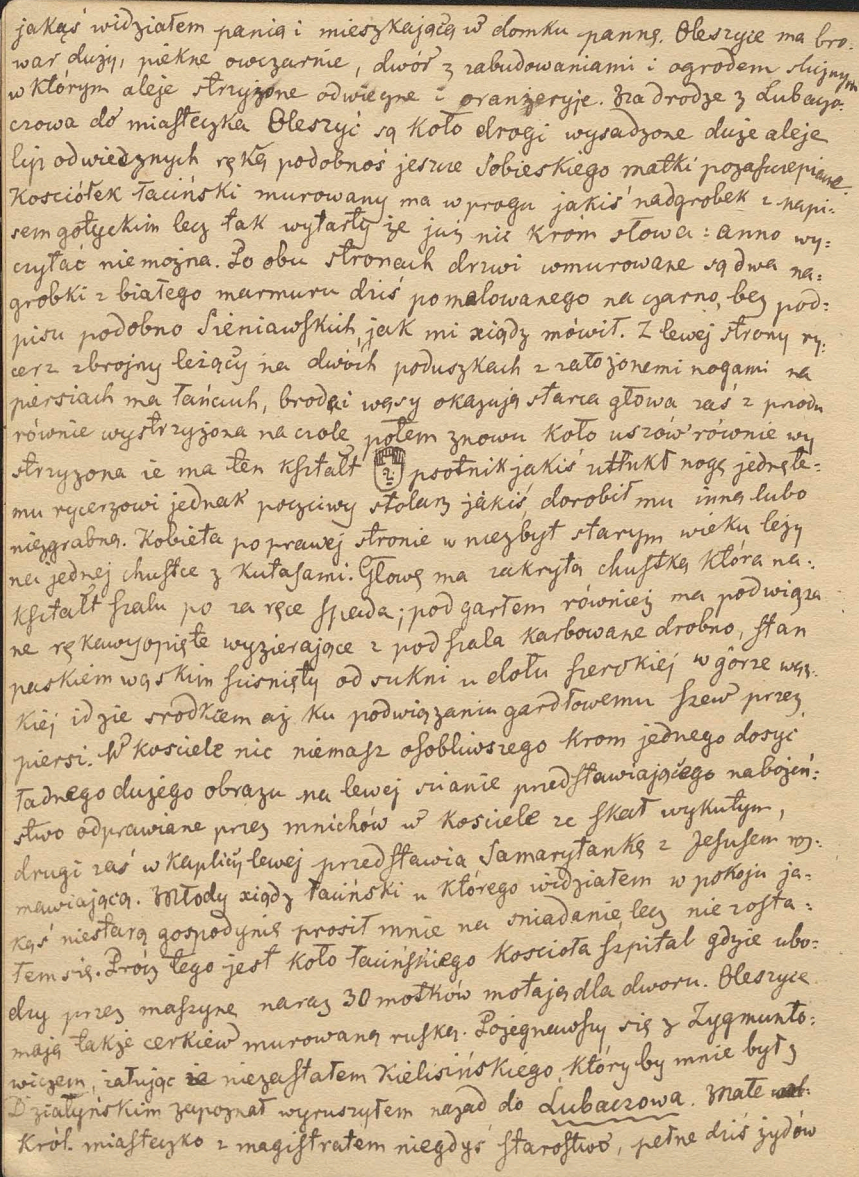 jakąś widziałem panią i mieszkającą w domku pannę. Oleszyce ma bro-
war duży, piękne owczarnie, dwór z zabudowaniami i ogrodem słujnym
w którym aleje strzyżone odwieczne i oranżeryje. Na drodze z Lubacz-
czowa do miasteczka Oleszyć są koło drogi wysadzone duże aleje
lip odwiecznych ręką podobnoś jeszcze Sobieskiego matki pozaszczepiane.
Kościółek łaciński murowany ma w progu jakiś nadgrobek z napi-
sem gotyckim lecz tak wytarty że już nic króm słowa: anno wy-
czytać niemożna. Po obu stronach drzwi wmurowane są dwa na-
grobki z białego marmuru dziś pomalowanego na czarno, bez pod-
pisu podobno Sieniawskich, jak mi xiądz mówił. Z lewej strony ry-
cerz zbrojny leżący na dwóch poduszkach z założonemi nogami na
piersiach ma łańcuch, broda i wąsy okazują starca głowa zaś z przodu
równie wystrzyżona na czole, potem znowu koło uszów równie wy
strzyżona ie ma ten kształt psotnik jakiś utłukł nogę jedną te-
mu rycerzowi jednak poczciwy stolarz jakiś dorobił mu inną lubo
niezgrabną. Kobieta po prawej stronie w niezbyt starym wieku leży
na jednej chustce z kutasami. Głowę ma zakrytą chustką która na-
kształt szalu po za ręce spada; pod gartem również ma podwiąza
ne rękawy opięte wyzierające z pod szala karbowane drobno, stan
paskiem wąskim ściśnięty od sukni u dołu szerokiej w górze wąz-
kiej idzie środkiem aż ku podwiązaniu gardłowemu szew przez
piersi. W kościele nic niemasz osobliwszego krom jednego dosyć
ładnego dużego obrazu na lewej scianie przedstawiającego nabożeń-
stwo odprawiane przez mnichów w kościele ze skał wykutym,
drugi zaś w kaplicy lewej przedstawia Samarytankę z Jesusem roz-
mawiającą. Młody xiądz łaciński u którego widziałem w pokoju ja-
kąś niestarą gospodynię prosił mnie na sniadanie lecz nie zosta-
łem się. Prócz tego jest koło łacińskiego kościoła szpital gdzie ubo-
dzy przez maszynę naraz 30 motków motają dla dworu. Oleszyce
mają także cerkiew murowaną ruską. Pożegnawszy się z Zygmunto-
wiczem, żałując że niezastałem Kielisińskiego, któryby mnie był z
Działyńskim zapoznał wyruszyłem nazad do Lubaczowa. Małe
Król. miasteczko z magistratem niegdyś starostwo, pełne dziś żydów